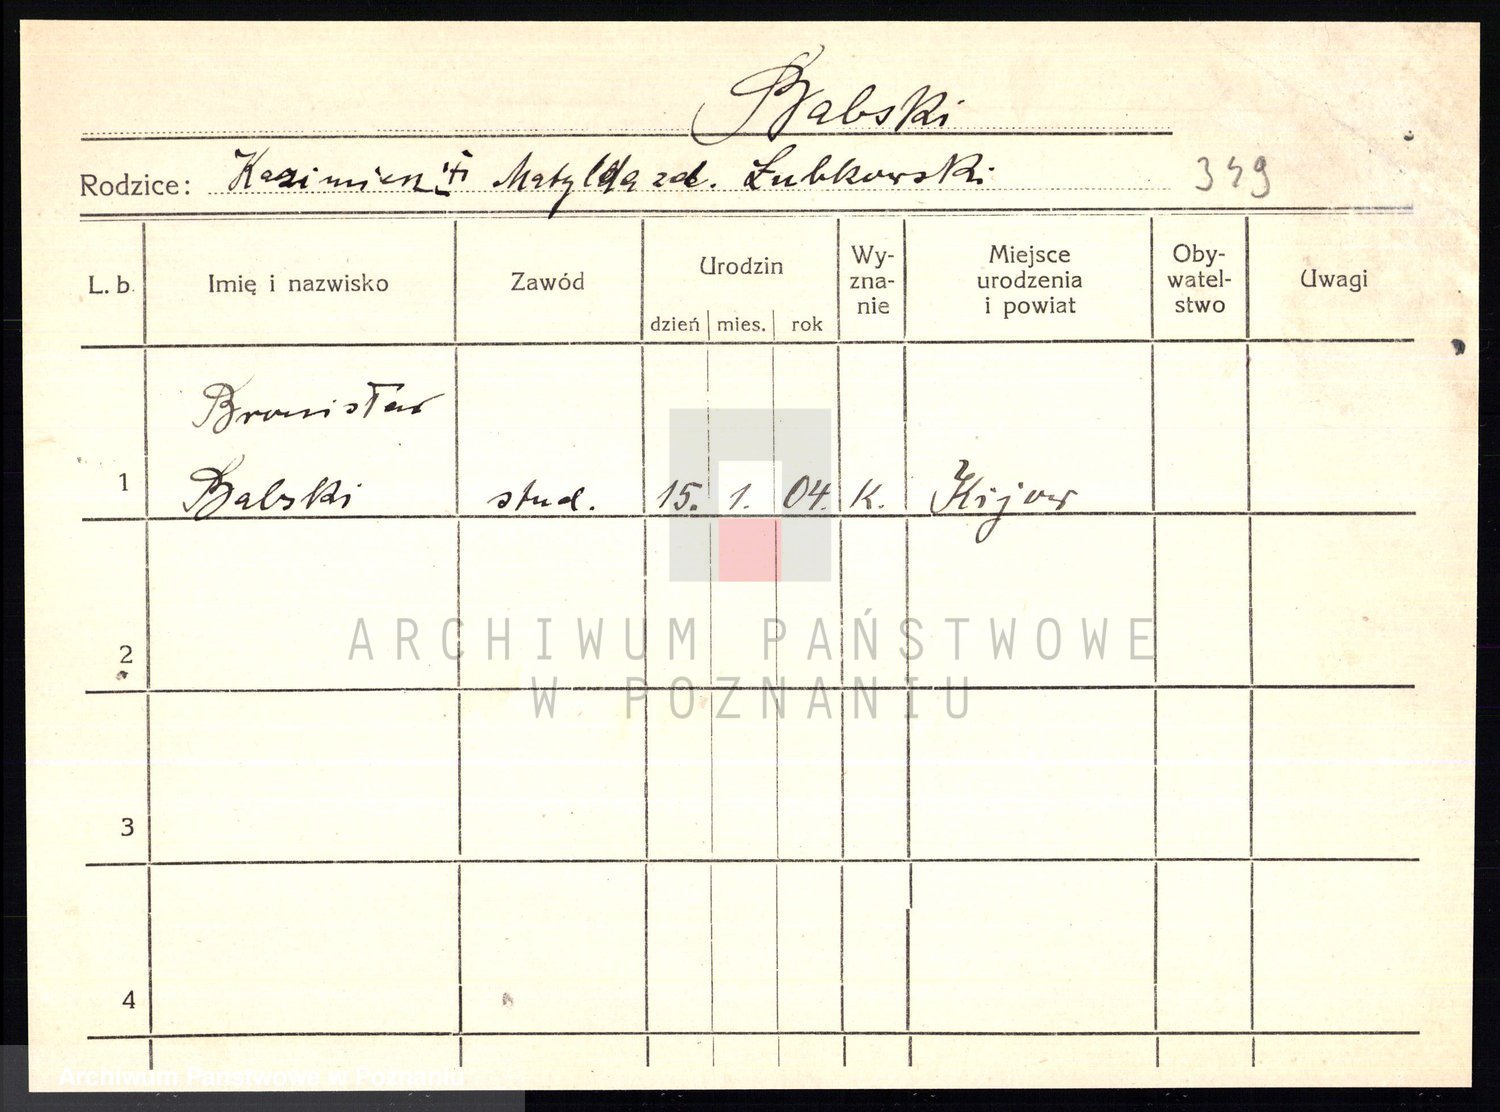 Babski
Rodzice: Kazimierz i Matylda zd. Łubkowski 349
L. b. Imię i nazwisko Zawód Urodzin dzień mies. rok Wy-zna-nie Miejsce urodzenia i powiat Oby-watel-stwo Uwagi
Bronisław
1 Babski stud. 15. 1. 04. K. Kijow
2
3
4
ARCHIWUM PAŃSTWOWE
W POZNANIU
Archiwum Państwowe w Poznaniu